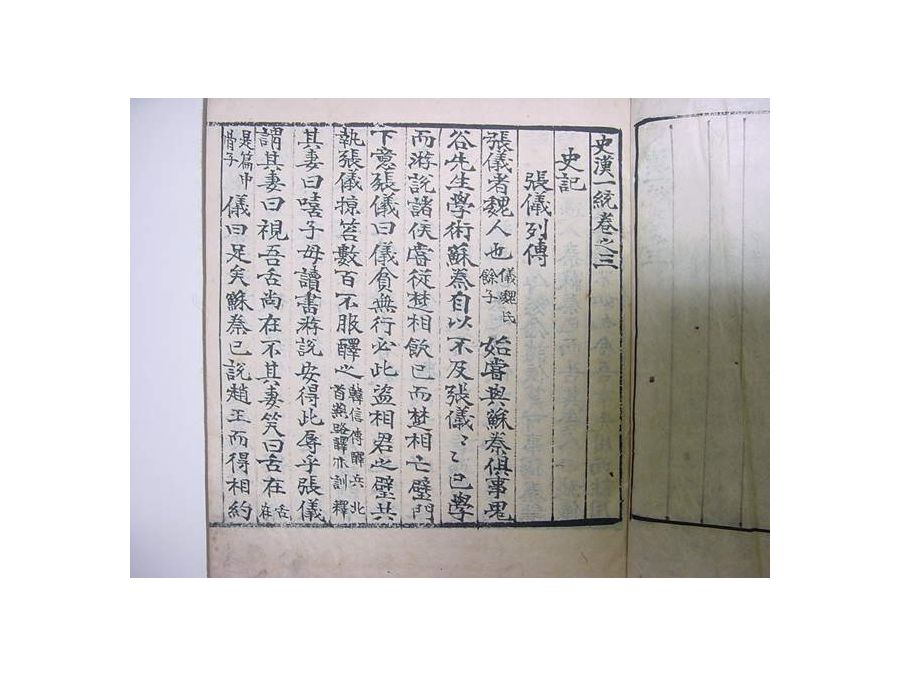 史漢一統卷之三
史記
張儀列傳
張儀者魏人也儀魏氏餘子始嘗與蘇秦俱事鬼
谷先生學術蘇秦自以不及張儀〻〻已學
而游說諸侯嘗從楚相飮已而楚相亡璧門
下意張儀曰儀貧無行必此盜相君之璧共
執張儀掠笞數百不服醳之韓信傳醳兵北首燕路醳亦訓釋
其妻曰嘻子毋讀書游說安得此辱乎張儀
謂其妻曰視吾舌尚在不其妻笑曰舌在舌在
是篇中骨子儀曰足矣蘇秦已說趙王而得相約